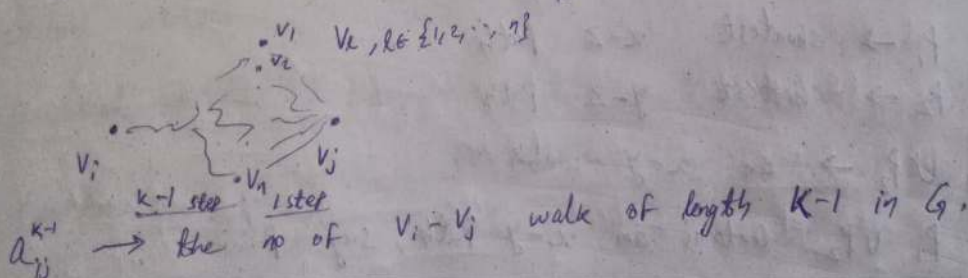 V₁ Vℓ, ℓ∈{1,2,⋯,n}
V₂
Vᵢ Vₙ Vⱼ
K-1 step 1 step
aᵢⱼᴷ⁻¹ → the no of Vᵢ - Vⱼ walk of length K-1 in G.